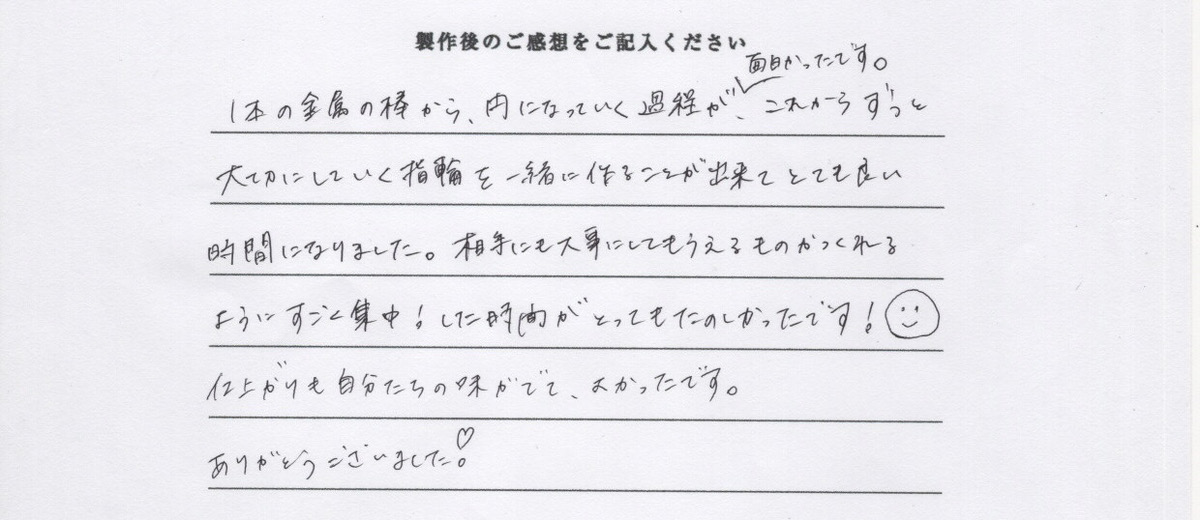 製作後のご感想をご記入ください
面白かったです。
1本の金属の棒から、円になっていく過程が、これからずっと
大切にしていく指輪を一緒に作ることが出来てとても良い
時間になりました。相手にも大事にしてもうえるものがつくれる
ようにすごく集中!した時間がとってもたのしかったです!
仕上がりも自分たちの味がでて、よかったです。
ありがとうございました♡。